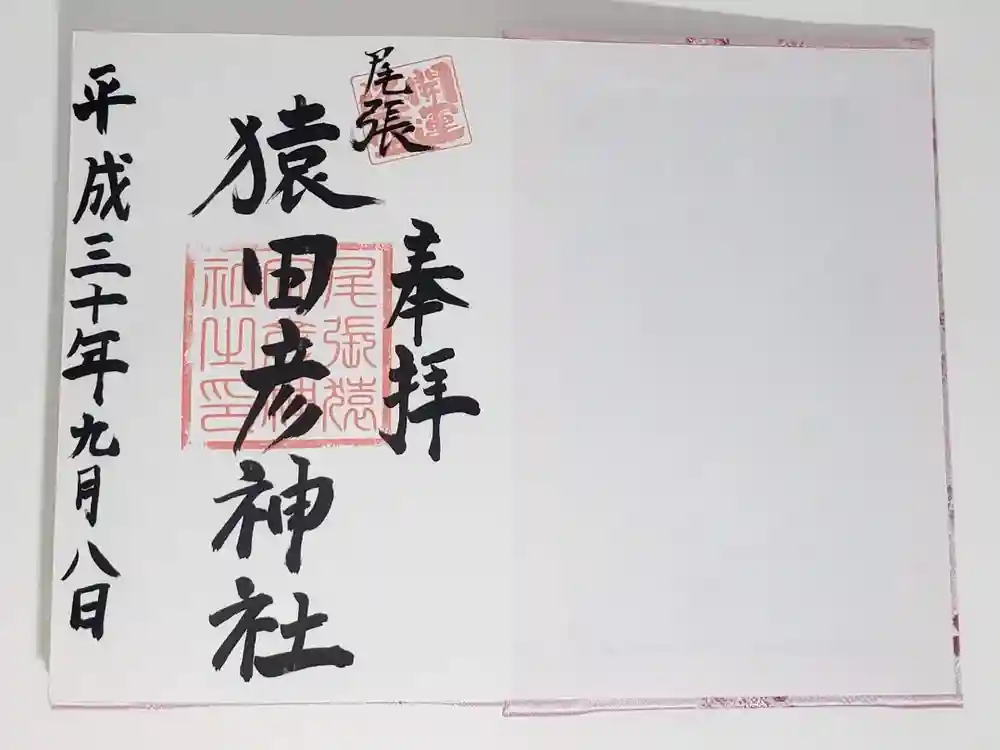 尾張
開運
奉拝
猿田彦神社
尾張猿
田彦神
社之印
平成三十年九月八日